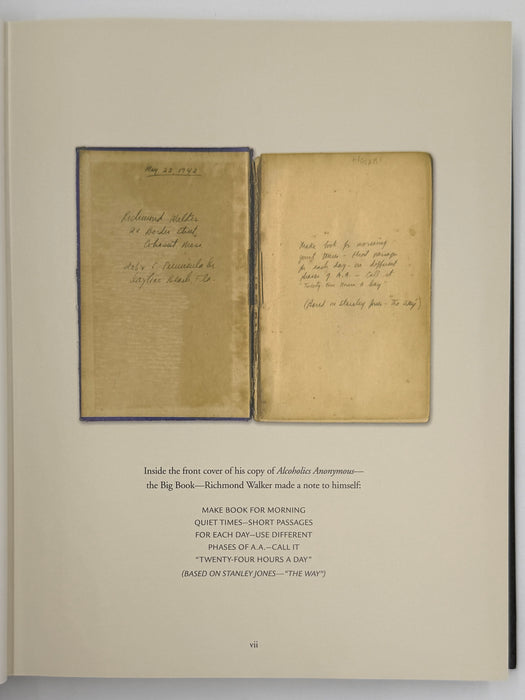 May 22, 1942
Richmond Walker
Border
Cohasset Mass
Peninsula
Daytona Beach, Fla.
Make book for morning
quiet times - short passages
for each day - use different
phases of A.A. - Call it
"Twenty Four Hours a Day"
(Based on Stanley Jones - "The Way")
Inside the front cover of his copy of Alcoholics Anonymous—
the Big Book—Richmond Walker made a note to himself:
MAKE BOOK FOR MORNING
QUIET TIMES—SHORT PASSAGES
FOR EACH DAY—USE DIFFERENT
PHASES OF A.A.—CALL IT
“TWENTY-FOUR HOURS A DAY”
(BASED ON STANLEY JONES—“THE WAY”)
vii